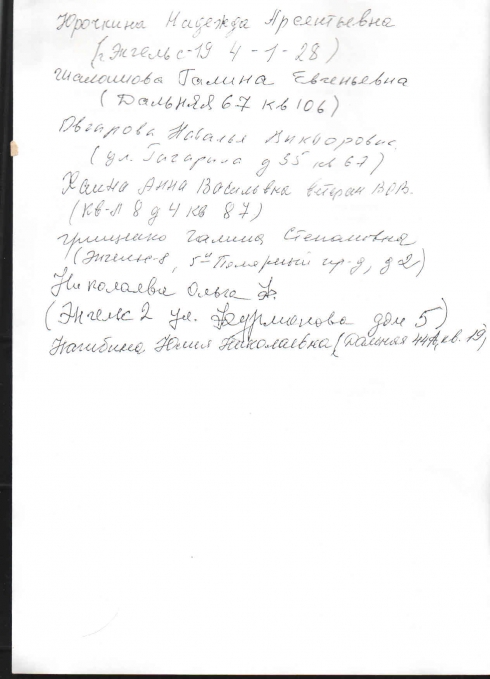 Юрочкина Надежда Арсентьевна
(г. Энгельс-19 4-1-28)
Галина Евгеньевна
(Дальняя 67 кв 106)
Наталья Викторовна
(ул. Гагарина д 35 кв 67)
Ханна Анна Васильевна ветеран ВОВ.
(Кв-л 8 д 4 кв 87)
Грищенко Галина Степановна
(Энгельс-8, 5й Полярный пр-д, д 2)
Николаева Ольга
(Энгельс 2 ул. дом 5)
Нагибина Юлия Николаевна (Дальняя 44А, кв. 19)